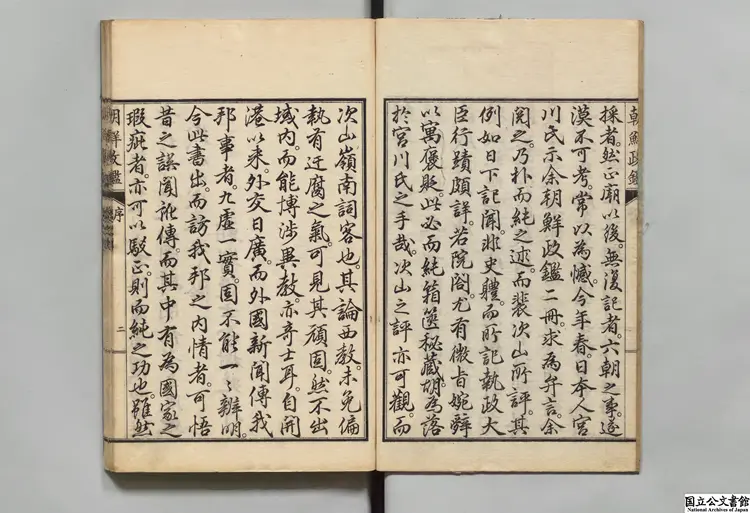 採者。然正廟以後。無復記者。六朝之事。遂
漠不可考。常以為憾。今年春。日本人宮
川氏示余朝鮮政鑑二冊。求為弁言。余
閱之。乃朴而純之述。而裴次山所評。其
例如日下記聞。非史體。而所記執政大
臣行蹟頗詳。若院閣。尤有微旨婉辭
以寓褒貶。此必而純箱篋秘藏。胡為落
於宮川氏之手哉。次山之評。亦可觀。而
朝鮮政鑑
次山嶺南詞客也。其論西教。未免偏
執有迂腐之氣。可見其頑固。然不出
域內。而能博涉異教。亦奇士耳。自開
港以來。外交日廣。而外國新聞傳我
邦事者。九虛一實。固不能一々辨明。
今此書出。而訪我邦之內情者。可悟
昔之誤聞訛傳。而其中有為國家之
瑕疵者。亦可以駁正。則而純之功也。雖然
朝鮮政鑑
序
二
国立公文書館
National Archives of Japan